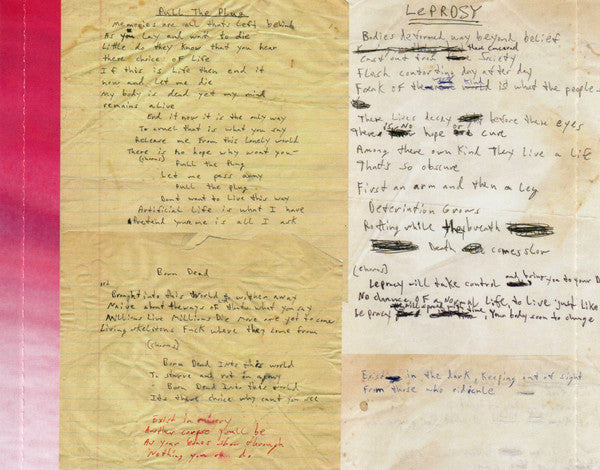 Pull The Plug
Memories are all that's left behind
As you lay and wait to die
Little do they know that you hear
there choice of Life
If this is Life then end it
now and Let me die
My body is dead yet my mind
remains alive
End it now it is the only way
To cruel that is what you say
Release me From this Lonely world
There is no hope why won't you
(chorus)
Pull the Plug
Let me pass away
Pull the Plug
Dont want to Live this way
Artificial Life is what I have
Pretend your me is all I ask
Born Dead
Brought into this World to wither away
Naive about the ways of thats what you say
Millions Live Millions Die more are yet to come
Living skeletons Fuck where they come from
(chorus)
Born Dead Into this world
To starve and rot in agony
Born Dead Into this World
Its there choice why cant you see
Exist in misery
Another corpse you'll be
As your bones show through
Nothing you do
LEPROSY
Bodies deformed way beyond belief
there concerned
Cast out from society
Flesh contorting day after day
Freak of the kind world is what the people
There Lives decay before there eyes
There is no hope of cure
Among there own Kind They Live a life
Thats so obscure
First an arm and then a Leg
Deteriation Grows
Rotting while they breath
Death comes slow
(chorus)
Leprosy will take control and bring you to your D
No chance OF a normal Life to Live just Like
Leprosy will spread with time, Your body soon to change
Exist in the dark, Keeping out of sight
From those who ridicule